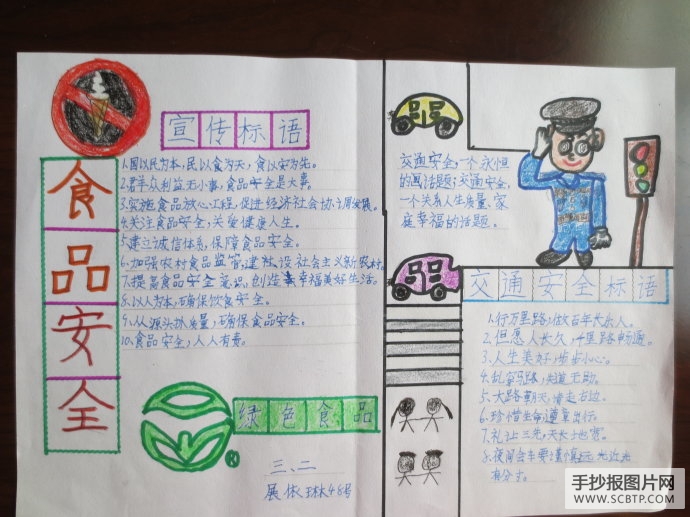 宣传标语
食品安全
1.国以民为本,民以食为天,食以安为先。
2.君羊众利益无小事,食品安全是大事。
3.实施食品放心工程,促进经济社会协调发展。
4.关注食品安全,关爱健康人生。
5.建立诚信体系,保障食品安全。
6.加强农村食品监管,建设社会主义新农村。
7.提高食品安全意识,创造幸福美好生活。
8.以人为本,确保饮食安全。
9.从源头抓质量,确保食品安全。
10.食品安全,人人有责。
绿色食品
三、二
展依琳48号
交通安全,一个永恒
的话题;交通安全,
一个关系人生质量、家
庭幸福的话题。
交通安全标语
1.行万里路,做百年长乐人。
2.但愿人长久,千里路畅通。
3.人生美好,步步小心。
4.乱穿马路,失道无助。
5.大路朝天,请走右边。
6.珍惜生命,遵章出行。
7.礼让三先,天长地宽。
8.夜间会车要谨慎,远光近光
有分寸。
手抄报图片网
WWW.SCBTP.COM